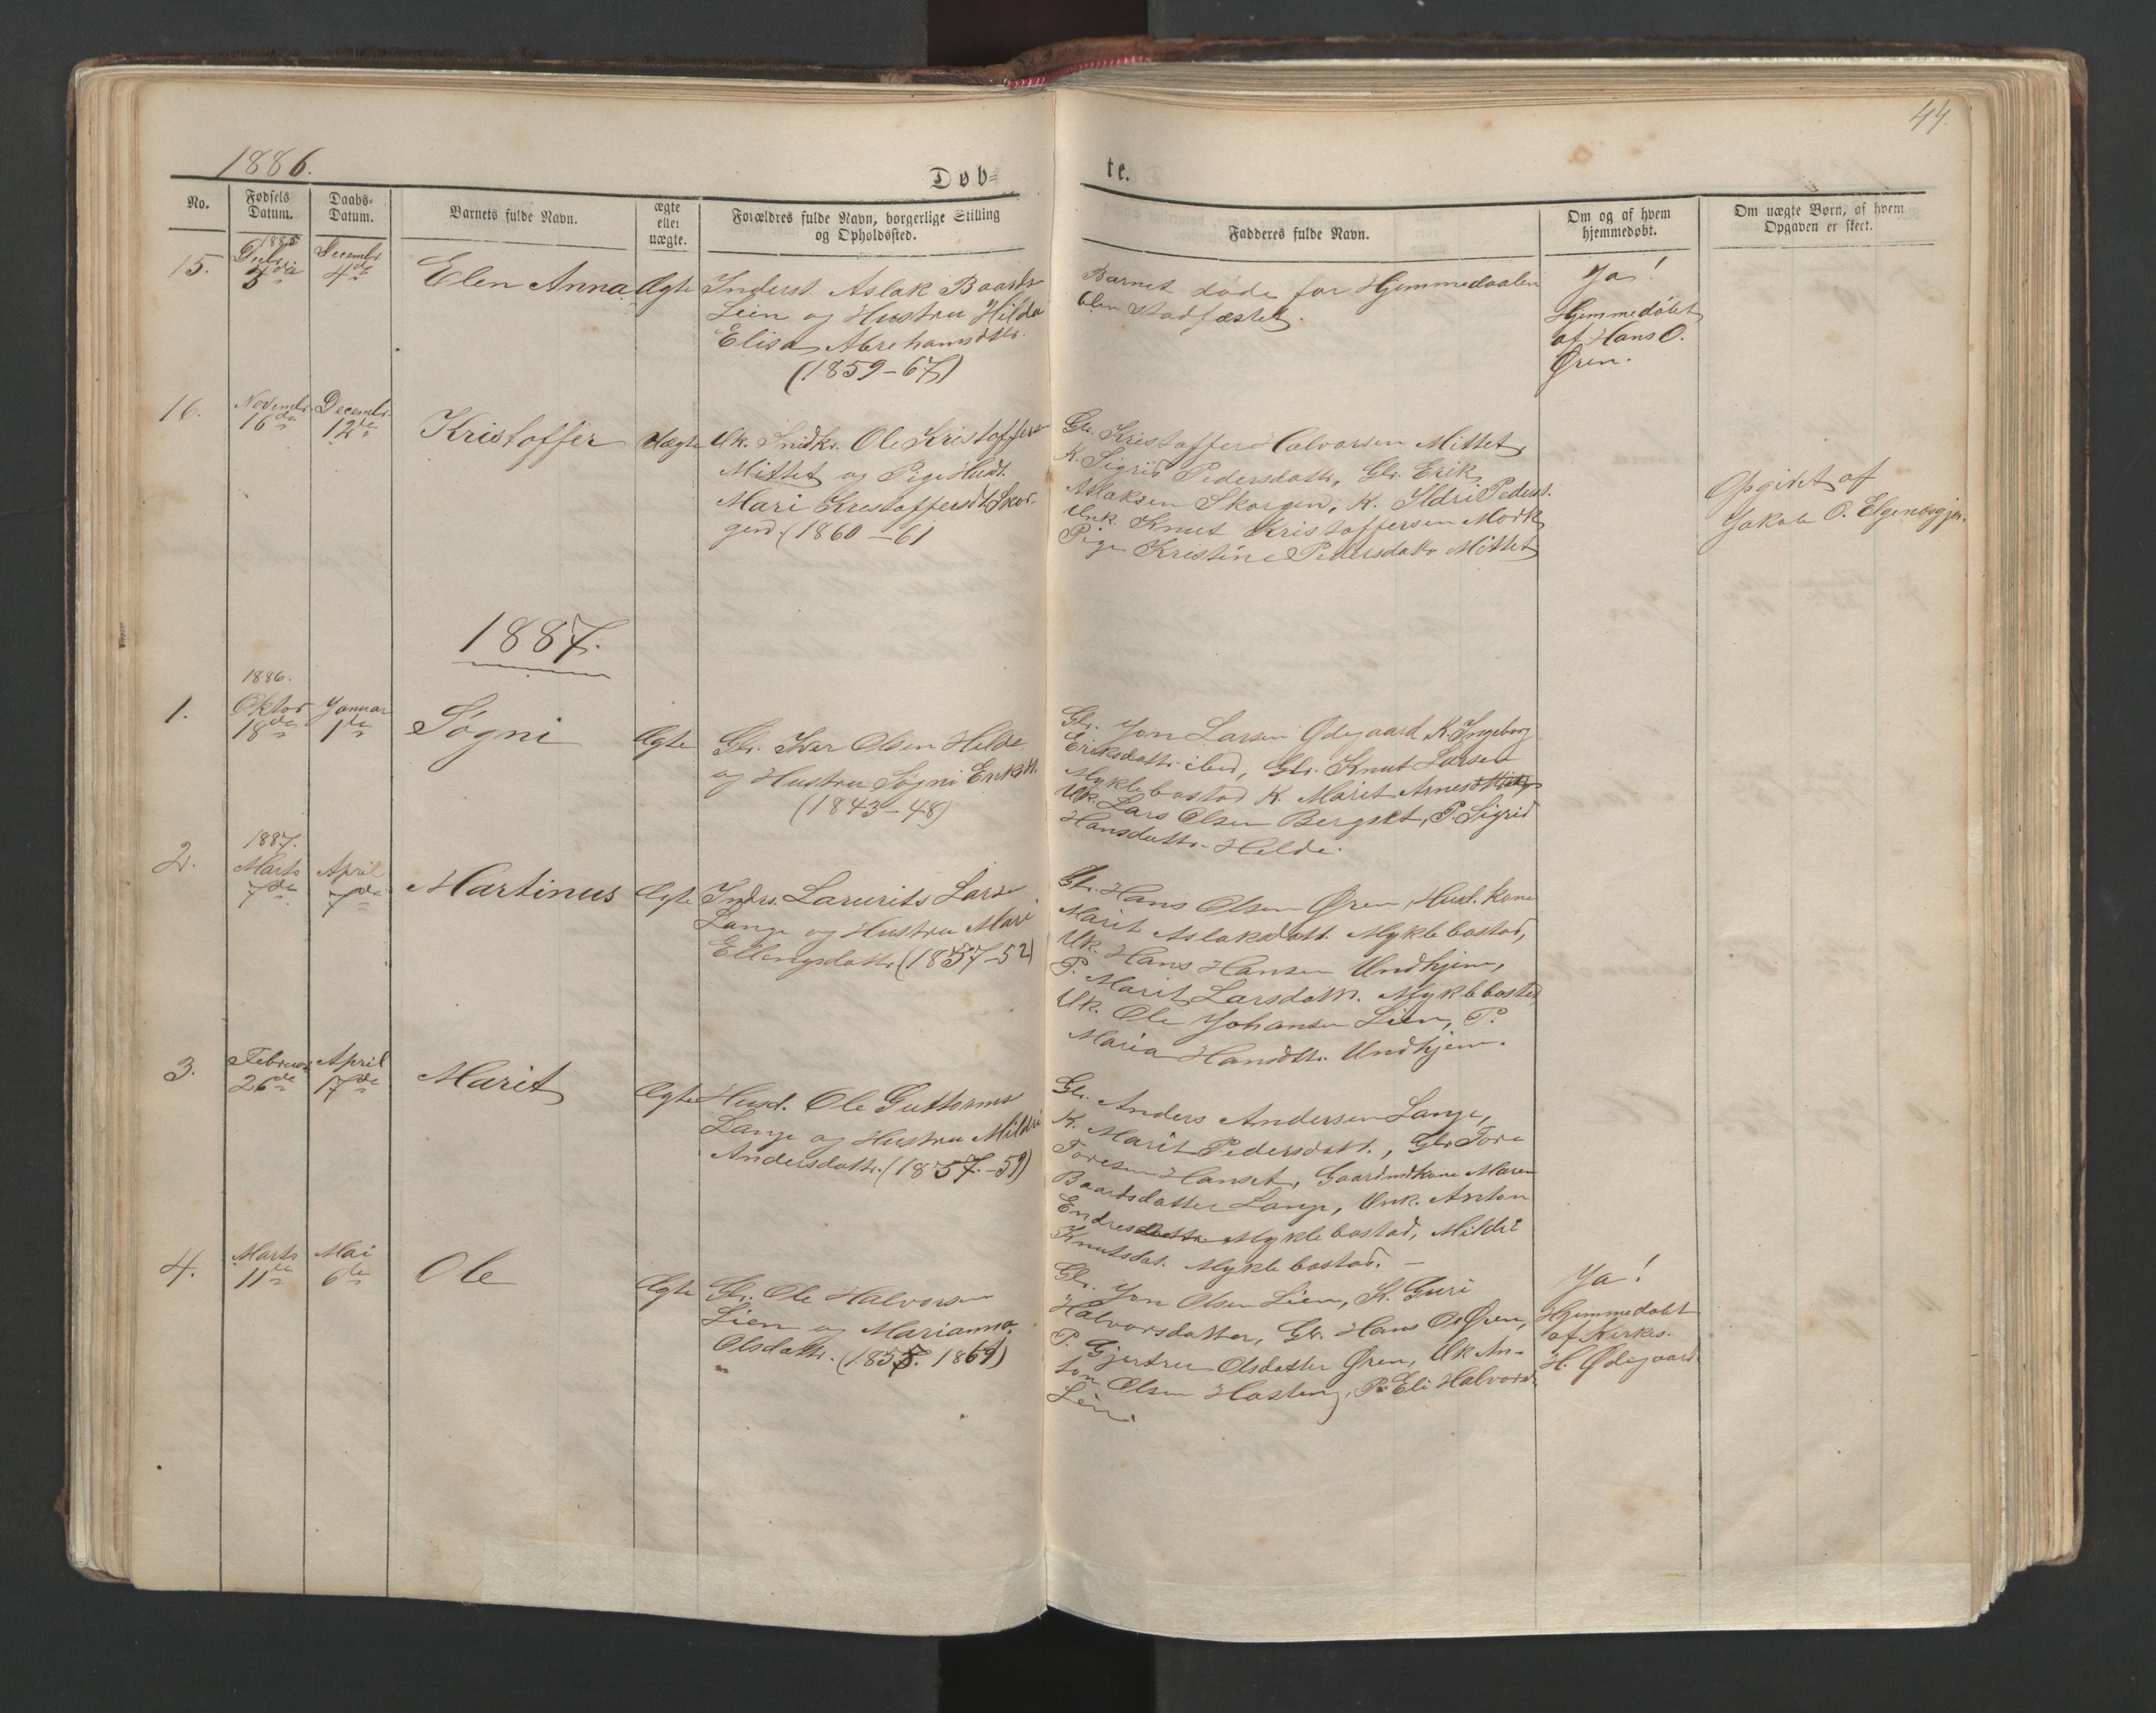 44
1886.
Døb=
te.
No.
Fødsels Datum.
Daabs-Datum.
Barnets fulde Navn.
ægte eller uægte.
Forældres fulde Navn, borgerlige Stilling
og Opholdssted.
Fadderes fulde Navn.
Om og af hvem
hjemmedøbt.
Om uægte Børn, af hvem
Opgaven er skeet.
15.
1885
Decembr
4de
Elen Anna
Ægte
Inderst. Aslak Baards
Lien og Hustru Hilda
Elisa Abrahamsdtr.
(1859-67)
Barnet døde før Hjemmedaaben
blev stadfæstet.
Ja!
Hjemmedøbt
af Hans O.
Øren.
16.
Novembr.
16de
Decembr.
12te
Kristoffer
Uægte
Uk. Snidkr. Ole Kristoffers
Mittet og Pige Husdt.
Mari Kristoffersdt Skor-
gen. (1860-61
Gbr. Kristoffer Halvorsen Mittet
K. Sigrid Pedersdattr, Gbr. Erik
Aslaksen Skorgen, K. Ildri Pederst.
Unk. Knut Kristoffersen Mork
Pige Kristine Pedersdattr Mittet
Opgivet af
Jakob O. Elgenæsgjer.
1887.
1.
1886.
Oktob
18de
Januar
1te
Søgni
Ægte
Gbr. Iver Olsen Helde
og Hustru Søgni Eriksdt.
(1843-48)
Gbr. Jon Larsen Ødegaard K. Ingeborg
Eriksdattr ibid, Gbr. Knut Larsen
Myklebostad K. Marit Arnesd
Uk. Lars Olsen Bergset, P. Sigrid
Hansdattr Helde.
2.
1887.
Marts
7de
April
7de
Martinus
Ægte
Indrs. Laurits Lars
Lange og Hustru Mari
Ellingsdattr (1857-52)
Gbr. Hans Olsen Øren, Husd. kone
Marit Aslaksdatt. Myklebostad,
Uk. Hans Hansen Undhjem,
P. Marit Larsdattr. Myklebostad
Uk. Ole Johansen Lien, P.
Maria Hansdtr. Undhjem.
3.
Februar
26de
April
17de
Marit
Ægte
Husd. Ole Guttorms
Lange og Hustru Mildri
Andersdattr. (1857-59)
Gbr. Anders Andersen Lange,
K. Marit Pedersdatt., Gbr Tore
Toresen Hanset, Gaardmdkone Maren
Baardsdatter Lange, Unk. Anton
Endres Myklebostad, Mildri
Knutsdat. Myklebostad. -
4.
Marts
11te
Mai
6te
Ole
Ægte
Gbr. Ole Halvorsen
Lien og Marianna
Olsdattr. (1855. 1869)
Gbr. Jon Olsen Lien, K. Guri
Halvorsdatter, Gbr. Hans O. Øren,
P. Gjertru Olsdatter Øren, Uk An-
ton Olsen Hasteng, P. Eli Halvorsd.
Lien
Ja!
Hjemmedøbt
af Kirks.
H. Ødegaard